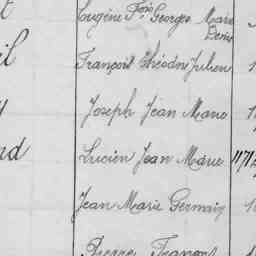 Eugène Fçois Georges Marie
Denis
il François Théodore Julien
y Joseph Jean Marie
nd Lucien Jean Marie 1171
Jean Marie Germain
Pierre François